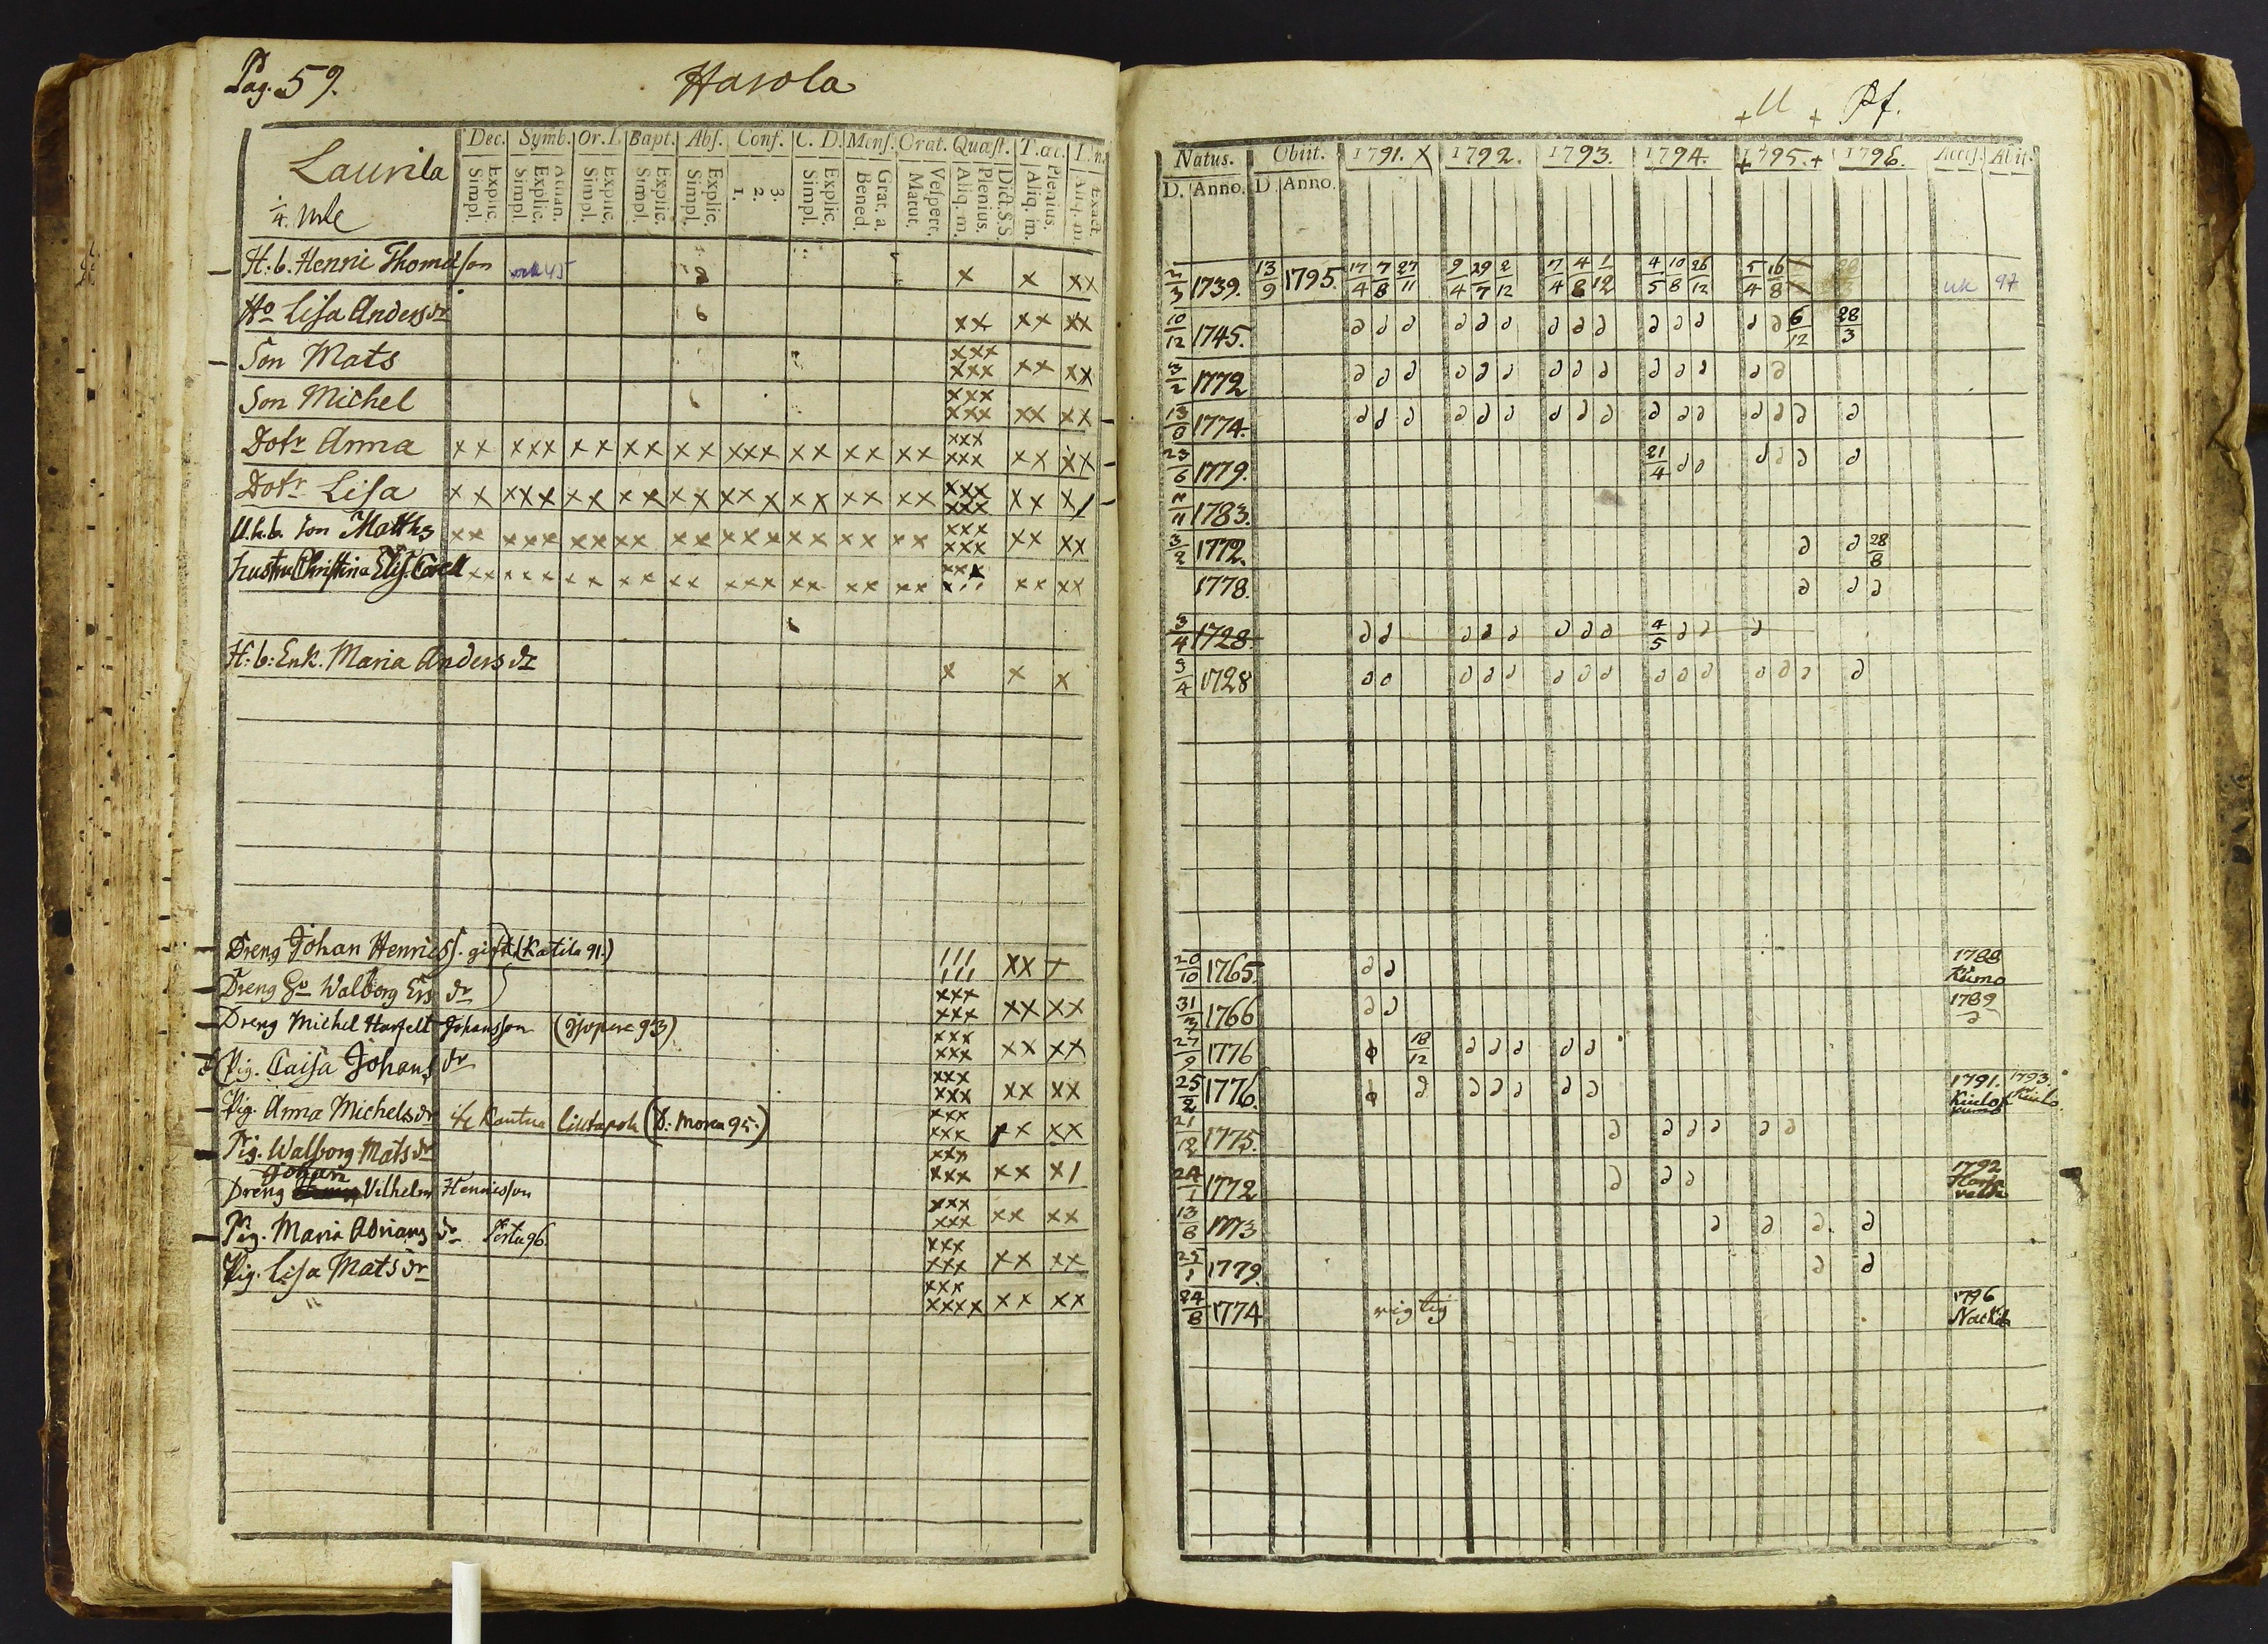 Pag. 59.
Harola
Laurila
1/4. mle
Dec. Symb. Or. D. Bapt. Abs. Conf. C. D. Mens. Orat. Quæst. T. œc.
Explic. Simpl.
Athan. Explic. Simpl.
Explic. Simpl.
Explic. Simpl.
Explic. Simpl.
3. 2. 1.
Explic. Simpl.
Grat. a. Bened.
Vespert. Matut.
Dict. S.S. Plenius. Aliq. m.
Plenius. Aliq. m.
Exact. Aliq. m.
H: b. Henric Thomasson x x xx
Ho Lisa Andersdr xx xx xx
Son Mats xxx xxx xx xx
Son Michel xxx xxx xx xx
Dotr Anna xx xxx xx xx xx xxx xx xx xx xxx xxx xx xx
Dotr Lisa xx xxx xx xx xx xxx xx xx xx xxx xxx xx x/
U.h.b. son Matths xx xxx xx xx xx xxx xx xx xx xxx xxx xx xx
hustru Christina Elis. xx xxx xx xx xx xxx xx xx xx xxx xx xx
H: b: Enk. Maria Andersdr x x x
Dreng Johan Henricss. gift (Katila 91.) xx x
Dreng Ho Walborg Ers dr xxx xxx xx xx
Dreng Michel Harfelt Johansson 93) xxx xxx xx xx
Pig. Caisa Johans dr xxx xxx xx xx
Pig. Anna Michelsdr Kautua (D: Morea 95.) xxx xxx xx xx
Pig. Walborg Matsdr xxx xxx xx x/
Johan
Dreng Vilhelm Henricsson xxx xxx xx xx
Pig. Maria Adrians dr Pertu 96. xxx xxx xx xx
Pig. Lisa Matsdr xxx xxxx xx xx
+ U + Pf.
Natus. Obiit. 1791. X 1792. 1793. 1794. +1795.+ 1796. Access. Abiit.
D. Anno. D. Anno.
1739. 13/9 1795. 17/4 7/8 27/11 9/4 29/7 2/12 7/4 4/8 1/12 4/5 10/8 26/12 5/4 16/8 uk 97
10/12 1745. 6/12 28/3
3/2 1772
1774.
23/6 1779. 21/4
1783.
3/2 1772. 28/8
1778.
3/4 1728. 4/5
3/4 1728
20/10 1765. 1788 Kumo
1766 1789
27/9 1776 18/12
25/2 1776. 1791. Kiulo 1793. Kiulo
21/12 1775.
24/1 1772 1792
13/8 1773
25/1 1779.
24/8 1774 rigtig 1796 Nackila